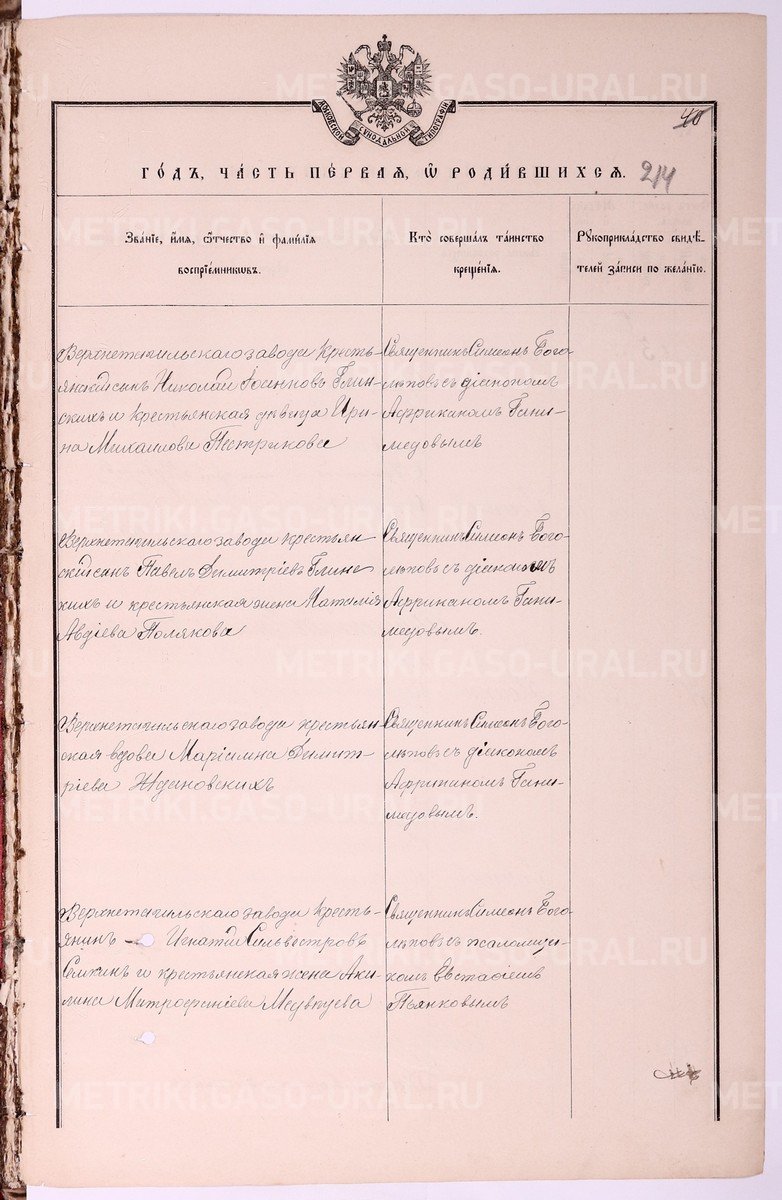 МОСКОВСКОЙ СУНОДАЛЬНОЙ ТИПОГРАФІИ
40
ГО́ДЪ, ЧА́СТЬ ПЕ́РВАЯ, Ѽ РОДИ́ВШИХСЯ.
214
Зва́ніе, и́мя, ѻ҆́тчество и҆ фами́лія
воспріе́мниковъ.
Кто̀ соверша́лъ та́инство
креще́нія.
Рꙋкоприкла́дство свидѣ́-
телей за́писи по жела́нію.
Верхнетагильскаго завода кресть-
янскій сынъ Николай Іоанновъ Глин-
скихъ и крестьянская дѣвица Ири-
на Михаилова Пестрикова
Священникъ Симеонъ Бого-
лѣповъ съ діакономъ
Африканомъ Гани-
медовымъ
Верхнетагильскаго завода крестьян-
скій сынъ Павелъ Димитріевъ Глинс-
кихъ и крестьянская жена Наталія
Авдіева Полякова
Священникъ Симеонъ Бого-
лѣповъ съ діакономъ
Африканомъ Гани-
медовымъ.
Верхнетагильскаго завода крестьян-
ская вдова Маріамна Димит-
ріева Ждановскихъ
Священникъ Симеонъ Бого-
лѣповъ съ діакономъ
Африканомъ Гани-
медовымъ.
Верхнетагильскаго завода кресть-
янинъ — Игнатій Сильвестровъ
Семкинъ и крестьянская жена Аки-
лина Митрофаніева Медвѣдева
Священникъ Симеонъ Бого-
лѣповъ съ псаломщи-
комъ Евстафіемъ
Пьянковымъ
METRIKI.GASO-URAL.RU